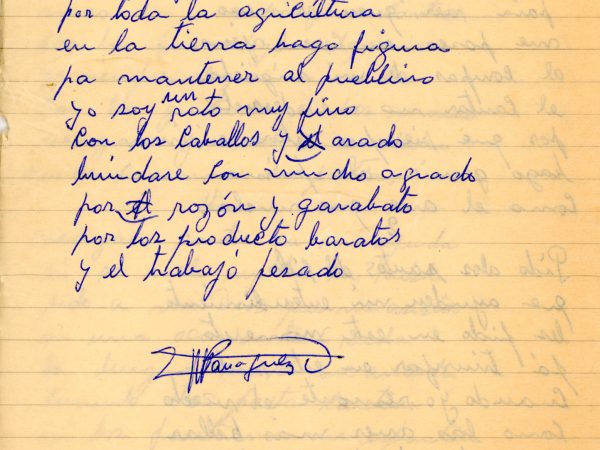 por toda la agricultura
en la tierra hago figura
pa mantener al pueblino
yo soy un roto muy fino
con los caballos y arado
brindare con mucho agrado
por rozón y garabato
por los producto baratos
y el trabajó pesado